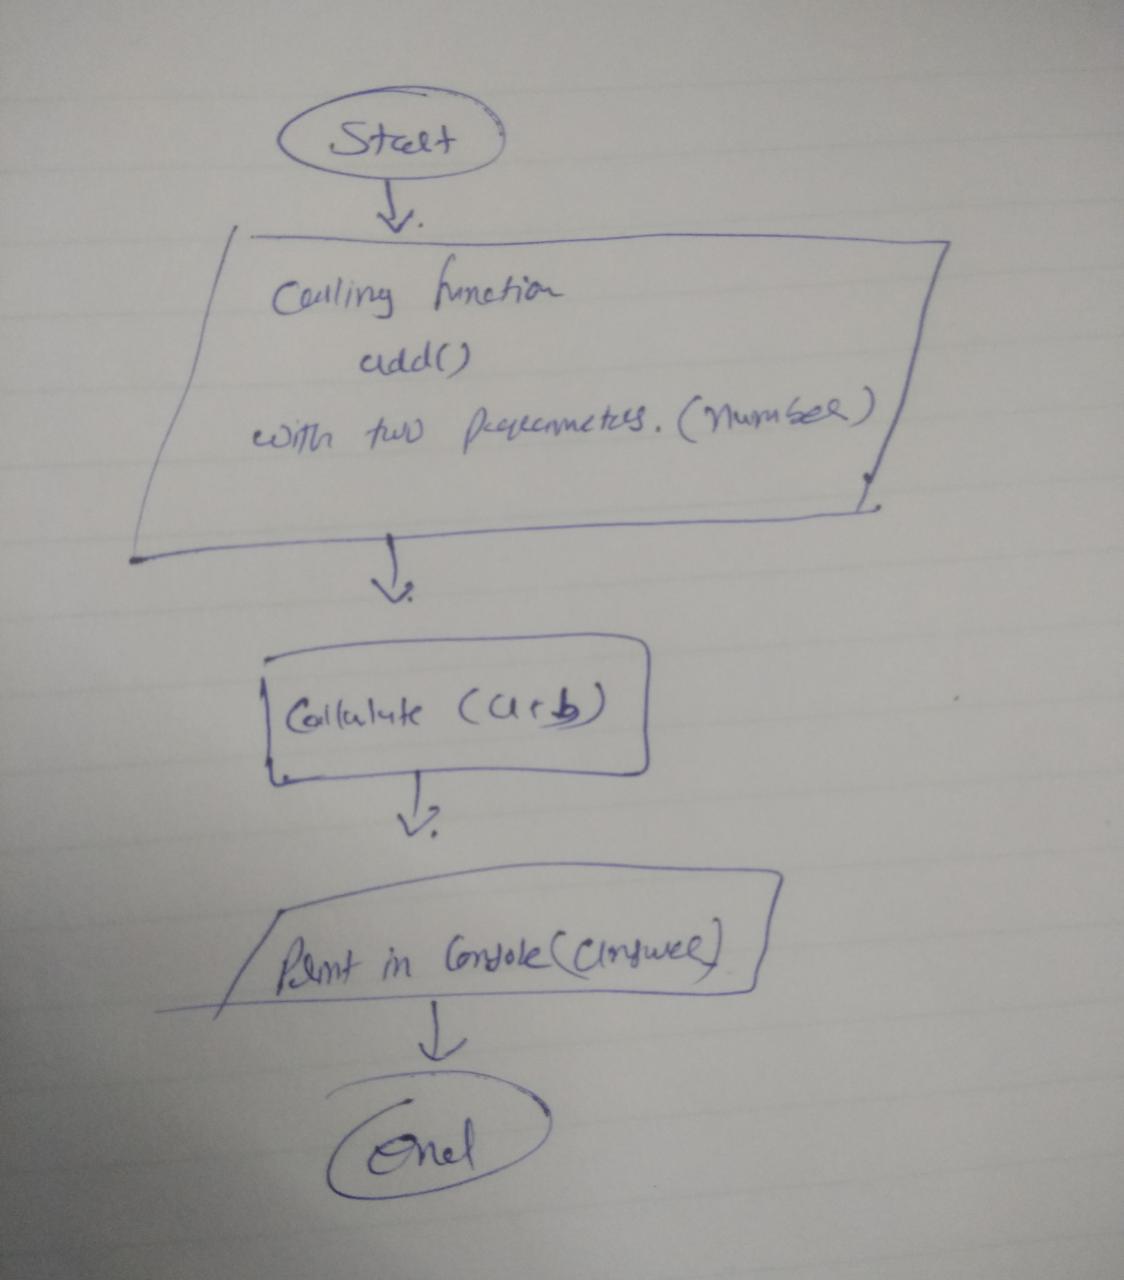 Start
Calling function
add()
with two parameters. (Number)
Calculate (a+b)
Print in Console (answer)
End